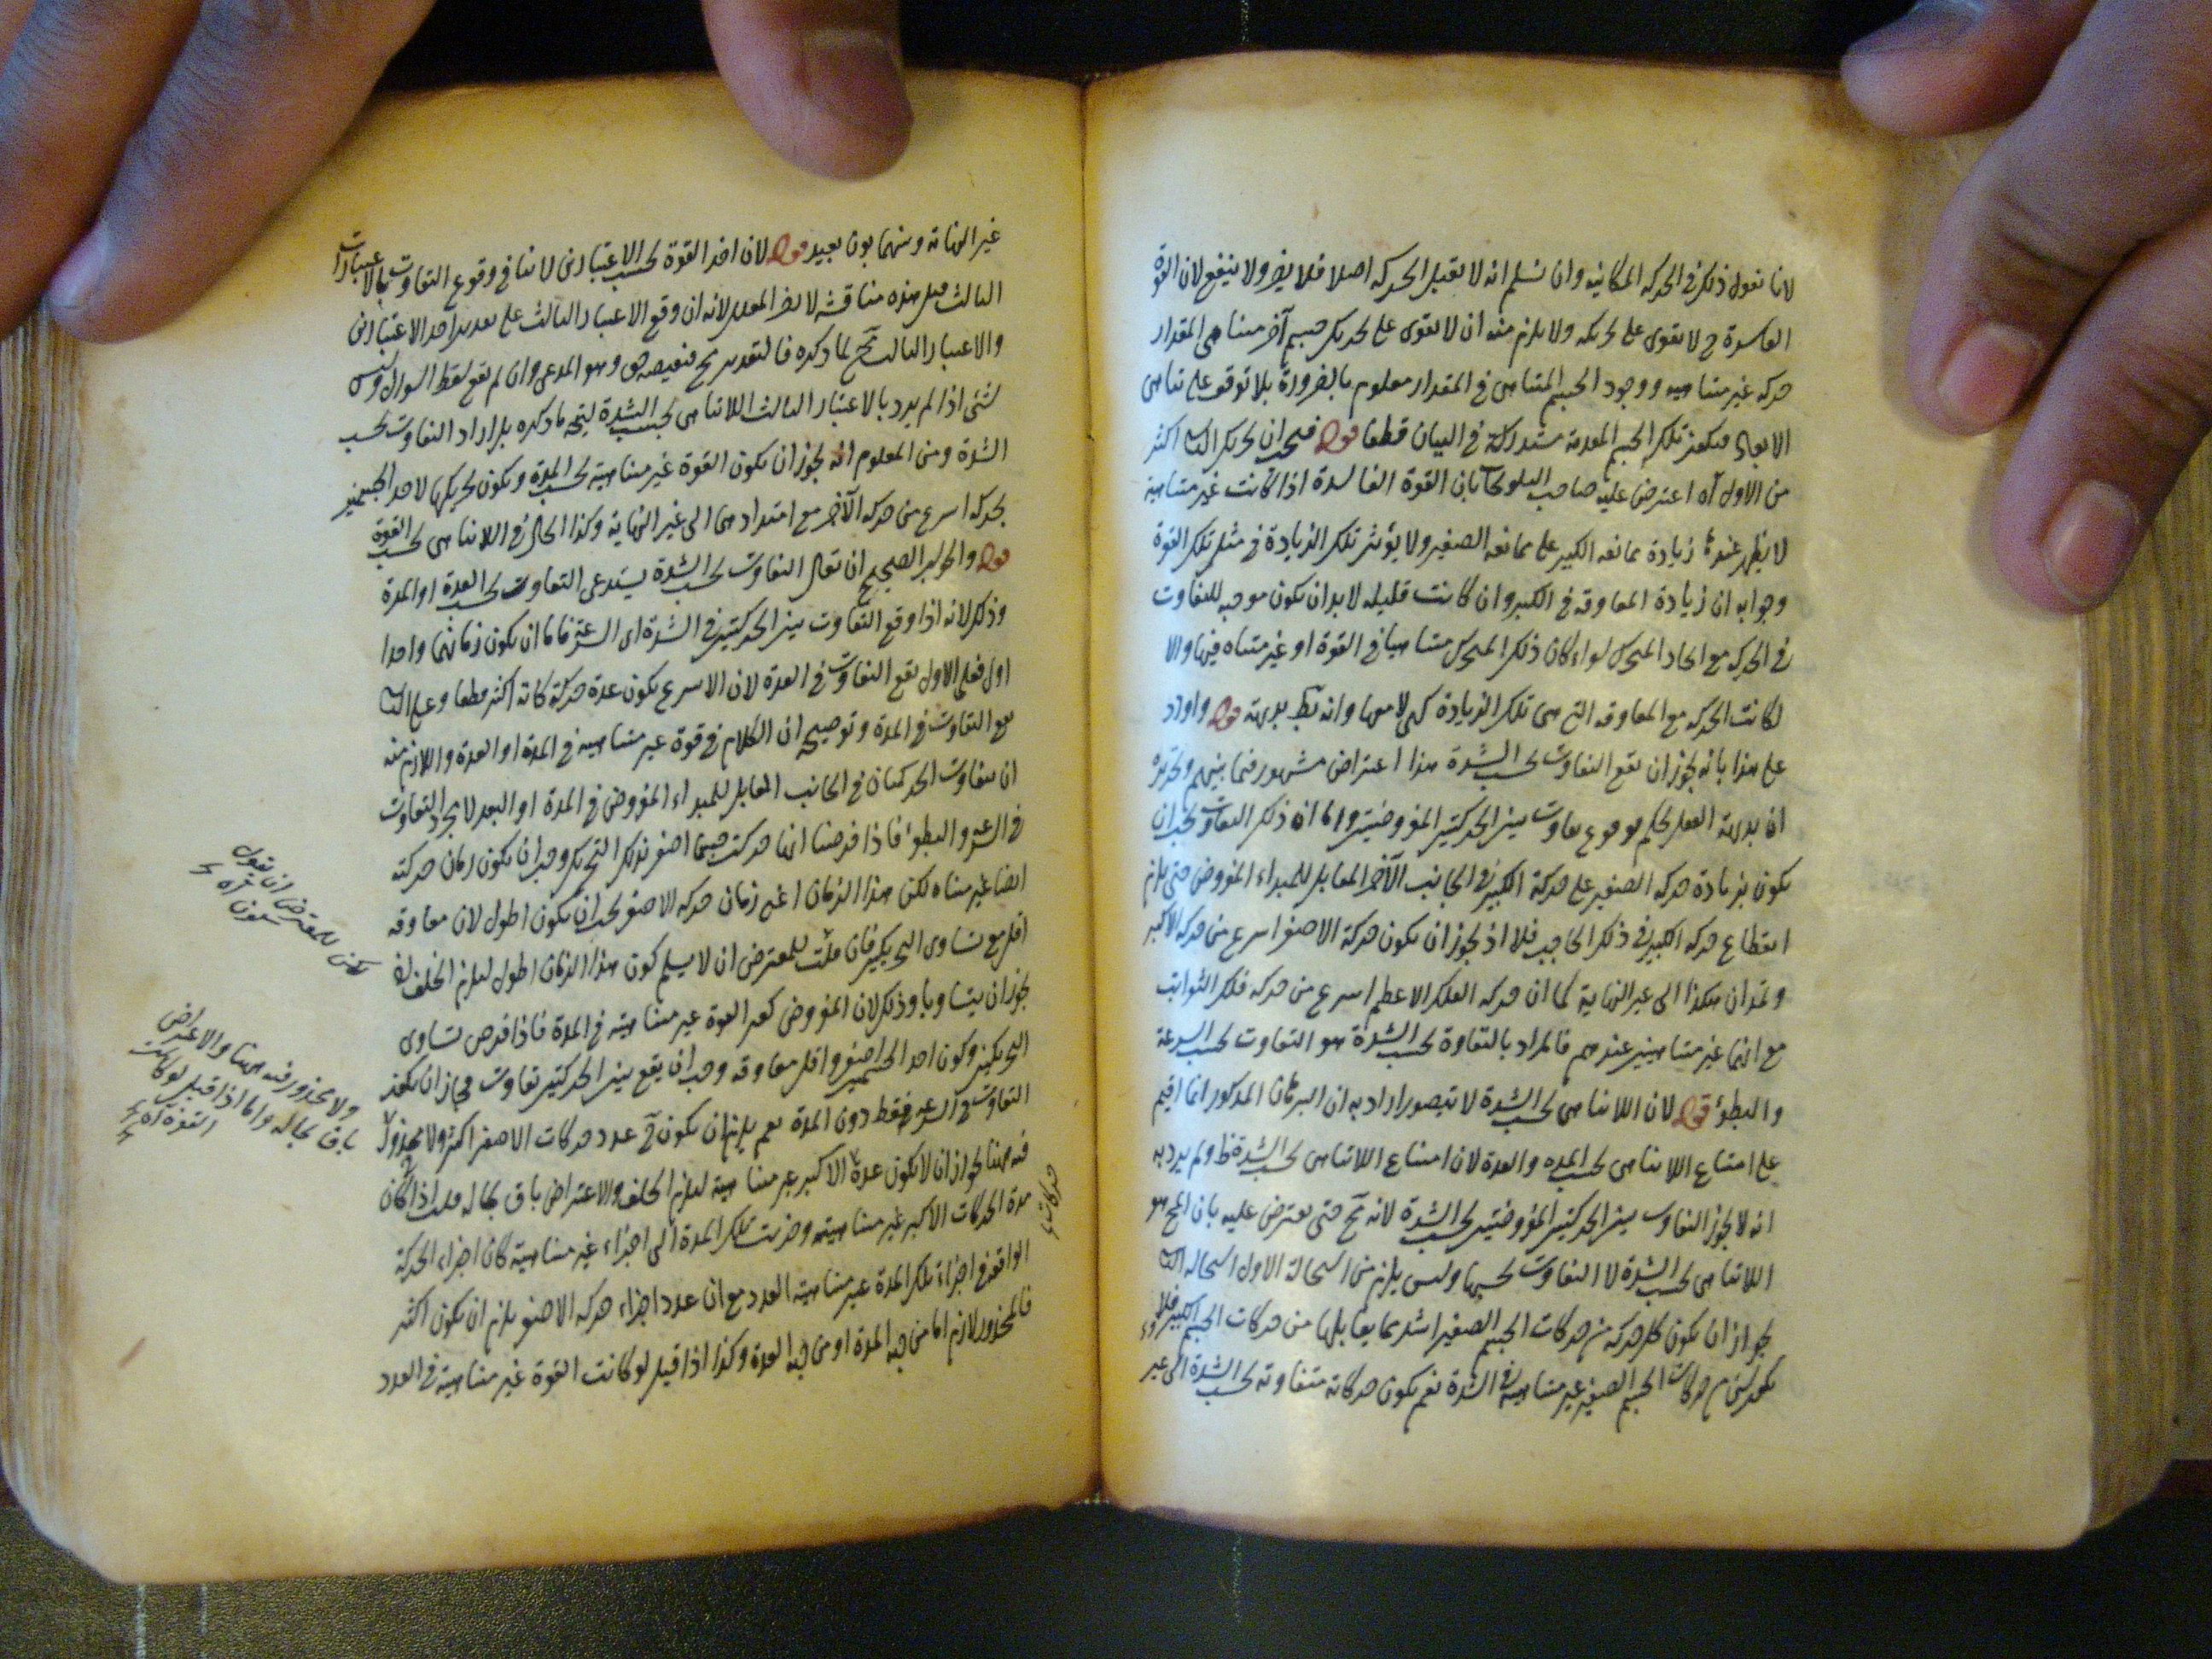 لانا نقول ذلك في الحركة المكانية وان نسلم انه لا يقبل الحركة اصلا فلا يضر ولا ينفع لان القوة
القاسرة ح لا تقوى على تحريكه ولا يلزم منه ان لا تقوى على تحريك جسم آخر متناهي المقدار
حركة غير متناهية ووجود الجسم المتناهي في المقدار معلوم بالضرورة بلا توقف على تناهي
الابعاد فيكون تلك المقدمة مستدركة في البيان قطعا قوله فيجب ان تحريك الثاني اكثر
من الاول آه اعترض عليه صاحب التلويحات بان القوة القاسرة اذا كانت غير متناهية
لا يظهر عندها زيادة ممانعة الكبير على ممانعة الصغير ولا يؤثر تلك الزيادة في مثل تلك القوة
وجوابه ان زيادة المعاوقة في الكبير وان كانت قليلة لا بد ان تكون موجبة للتفاوت
في الحركة مع اتحاد المحرك سواء كان ذلك المحرك متناهيا في القوة او غير متناه فيها والا
لكانت الحركة مع المعاوقة التي هي تلك الزيادة كهي لا معها وانه بط بديهة قوله واورد
على هذا بانه يجوز ان يقع التفاوت بحسب الشدة هذا اعتراض مشهور فيما بينهم وتحريره
ان بديهة العقل تحكم بوقوع تفاوت بين الحركتين المفروضتين واما ان ذلك التفاوت يجب ان
يكون بزيادة حركة الصغير على حركة الكبير في الجانب الآخر المقابل للمبداء المفروض حتى يلزم
انقطاع حركة الكبير في ذلك الجانب فلا اذ يجوز ان يكون حركة الاصغر اسرع من حركة الاكبر
وتمتدان هكذا الى غير النهاية كما ان حركة الفلك الاعظم اسرع من حركة فلك الثوابت
مع انهما غير متناهيتين عندهم فالمراد بالتفاوت بحسب الشدة هو التفاوت بحسب السرعة
والبطؤ قوله لان اللاتناهي بحسب الشدة لا يتصور اراد به ان البرهان المذكور انما اقيم
على امتناع اللاتناهي بحسب المدة والعدة لان امتناع اللاتناهي بحسب الشدة ظ ولم يرد به
انه لا يجوز التفاوت بين الحركتين المفروضتين بحسب الشدة لانه مح حتى يعترض عليه بان المح هو
اللاتناهي بحسب الشدة لا التفاوت بحسبها وليس يلزم من استحالة الاول استحالة الثاني
لجواز ان يكون كل حركة من حركات الجسم الصغير اشد مما يقابلها من حركات الجسم الكبير فلا
يكون شئ من حركات الجسم الصغير غير متناهية في الشدة نعم يكون حركاته متفاوتة بحسب الشدة الى غير
غير النهاية وبينهما بون بعيد قوله لان اخذ القوة بحسب الاعتبارين لا ينافي وقوع التفاوت بالاعتبارات
الثالث قيل هذه مناقشة لا يضر المعلل لانه ان وقع الاعتبار الثالث على تقدير احد الاعتبارين
والاعتبار الثالث مح لما ذكره فالتقدير مح فنقيضه حق وهو المدعى وان لم يقع سقط السؤال وليس
بشئ اذ لم يرد بالاعتبار الثالث اللاتناهي بحسب الشدة ليتجه ما ذكره بل اراد التفاوت بحسب
الشدة ومن المعلوم انه يجوز ان يكون القوة غير متناهية بحسب المدة ويكون تحريكها لاحد الجسمين
بحركة اسرع من حركة الآخر مع امتدادهما الى غير النهاية وكذا الحال في اللاتناهي بحسب القوة
قوله والجواب الصحيح ان يقال التفاوت بحسب الشدة يستدعى التفاوت بحسب العدة او المدة
وذلك لانه اذا وقع التفاوت بين الحركتين في الشدة اى السرعة فاما ان يكون زمانهما واحدا
اولا فعلى الاول يقع التفاوت في العدة لان الاسرع يكون عدة حركاته اكثر قطعا وعلى الثاني
يقع التفاوت في المدة وتوضيحه ان الكلام في قوة غير متناهية في المدة او العدة واللازم منه
ان يتفاوت الحركتان في الجانب المقابل للمبداء المفروض في المدة او العدة لا مجرد التفاوت
في السرعة والبطؤ فاذا فرضنا انها حركت جسما اصغر بذلك التحريك وجب ان يكون زمان حركته
ايضا غير متناه لكن هذا الزمان اعني زمان حركة الاصغر يجب ان يكون اطول لان معاوقه
اقل مع تساوى التحريكين فان قلت للمعترض ان لا يسلم كون هذا الزمان اطول ليلزم الخلف
يجوز ان يتساويا وذلك لان المفروض كون القوة غير متناهية في المدة فاذا فرض تساوى
التحريكين وكون احد الجسمين اصغر واقل معاوقه وجب ان يقع بين الحركتين تفاوت فجاز ان يكون
التفاوت في السرعة فقط دون المدة نعم يلزم ان يكون ح عدد حركات الاصغر اكثر ولا محذور
فيه ههنا لجواز ان لا يكون عدة الاكبر غير متناهية ليلزم الخلف والاعتراض باق بحاله قلت اذا كان
مدة الحركات الاكبر غير متناهية وجزئت تلك المدة الى اجزاء غير متناهية كان اجزاء الحركة
الواقعة في اجزاء تلك المدة غير متناهية العدد مع ان عدد اجزاء حركة الاصغر يلزم ان يكون اكثر
فالمحذور لازم اما من جهة المدة او من جهة العدة وكذا اذا قيل لو كانت القوة غير متناهية في العدد
حركات
لكن للمعترض ان يقول
ولا محذور فيه ههنا والاعتراض
باق بحاله واما اذا قيل لو كانت
القوة آه